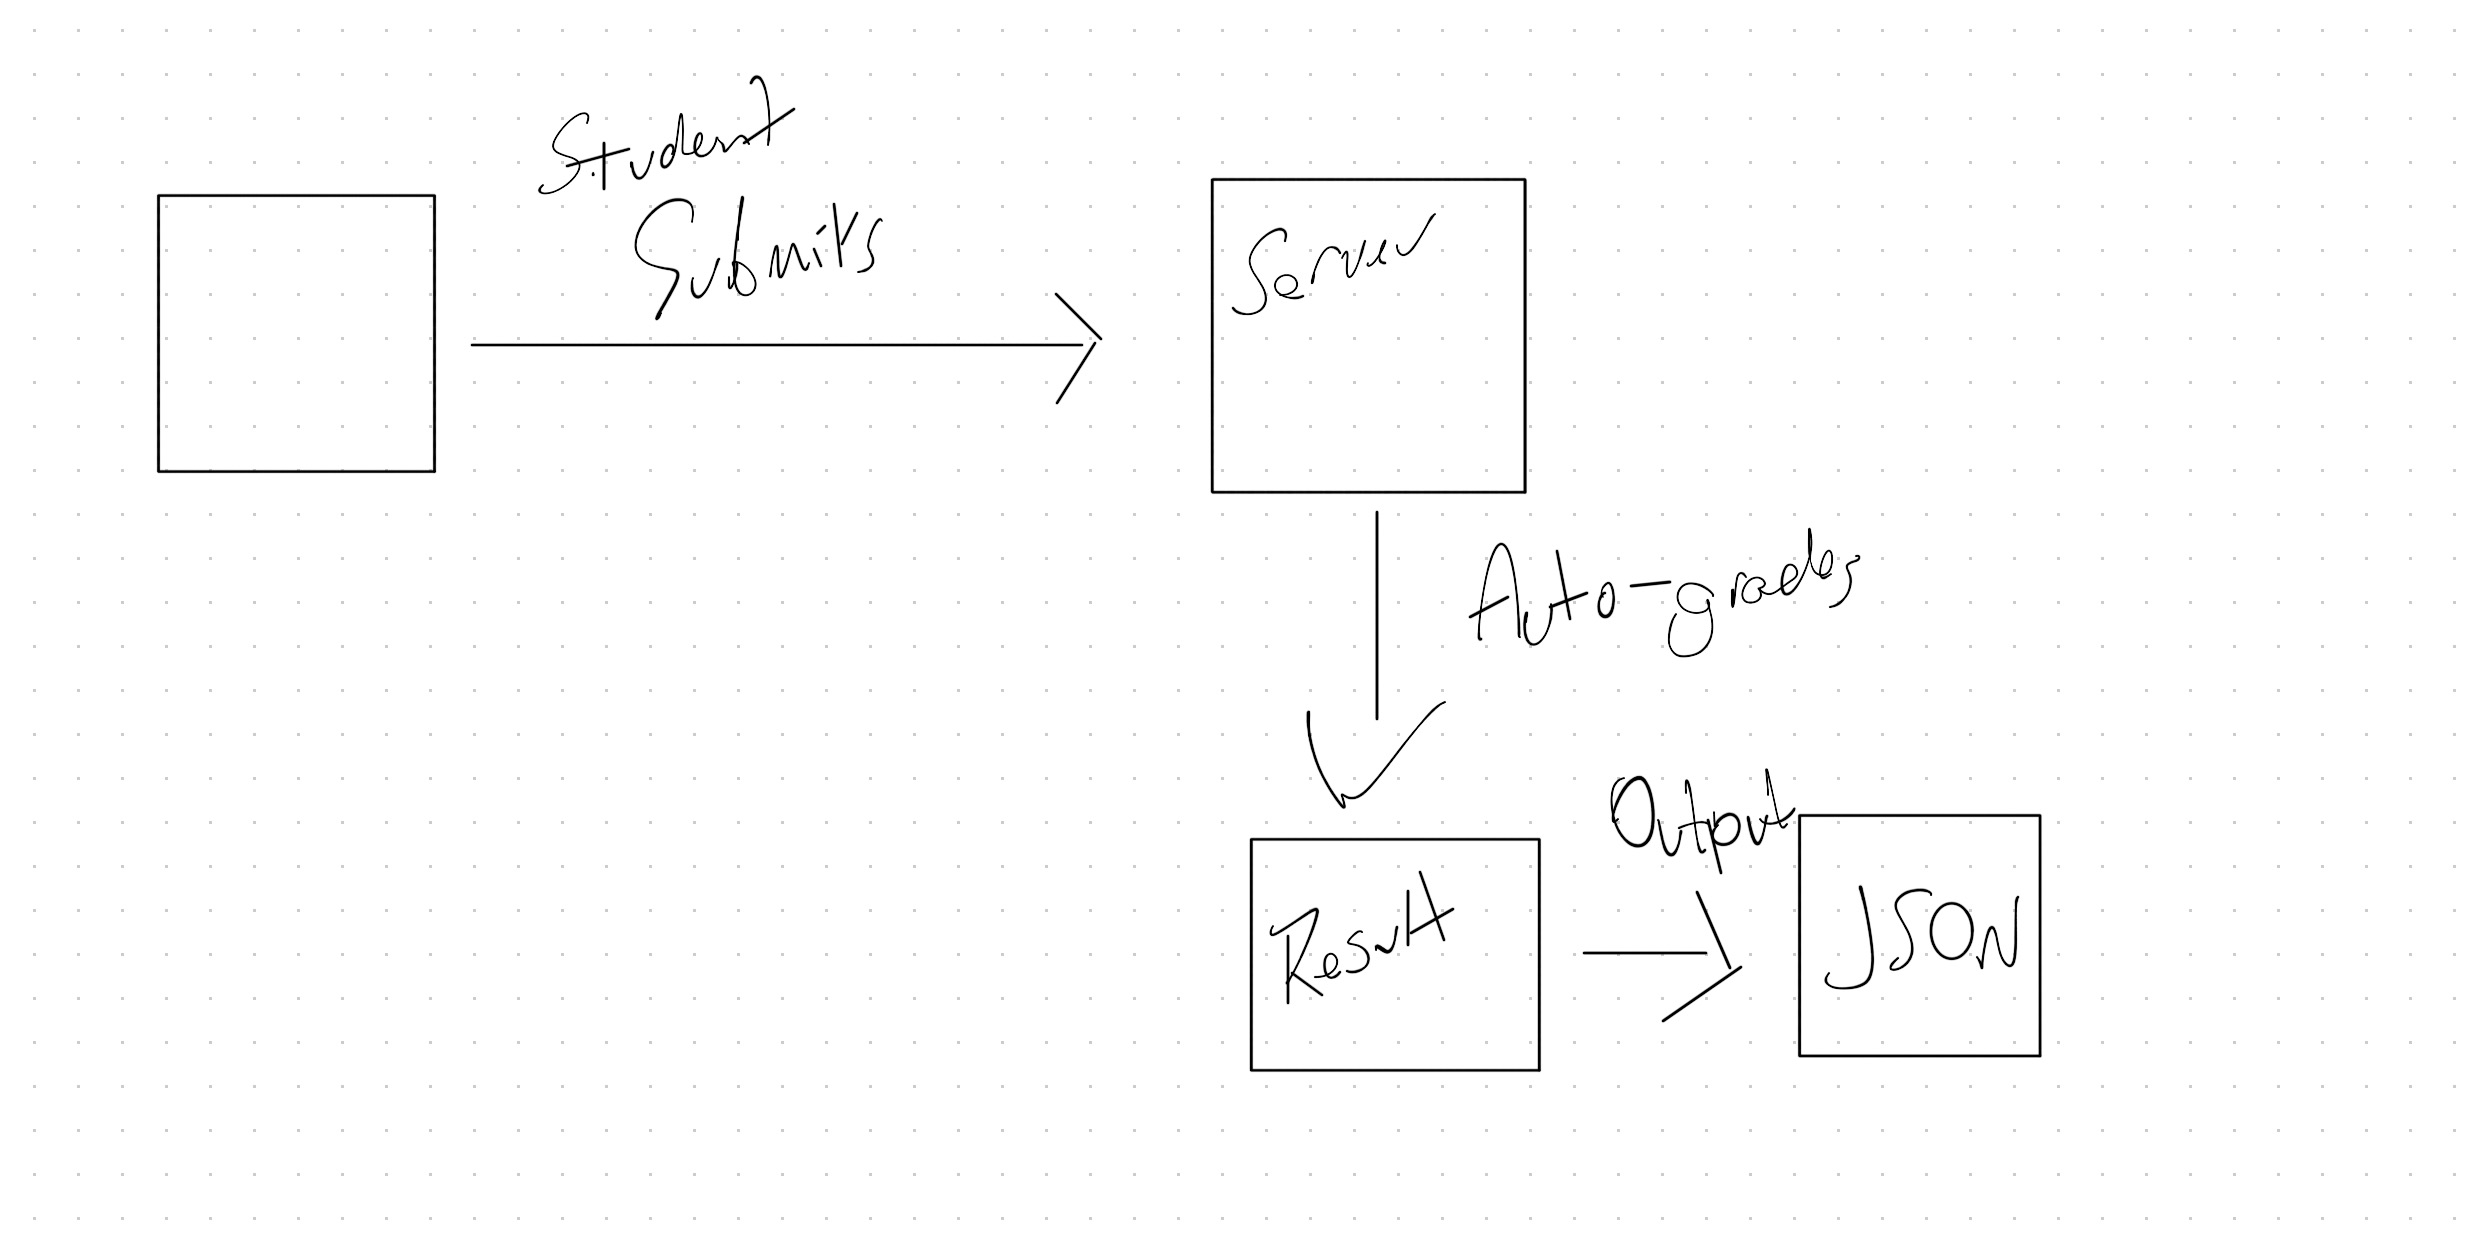 Student
Submits
Server
Auto-grades
Output
Result
JSON